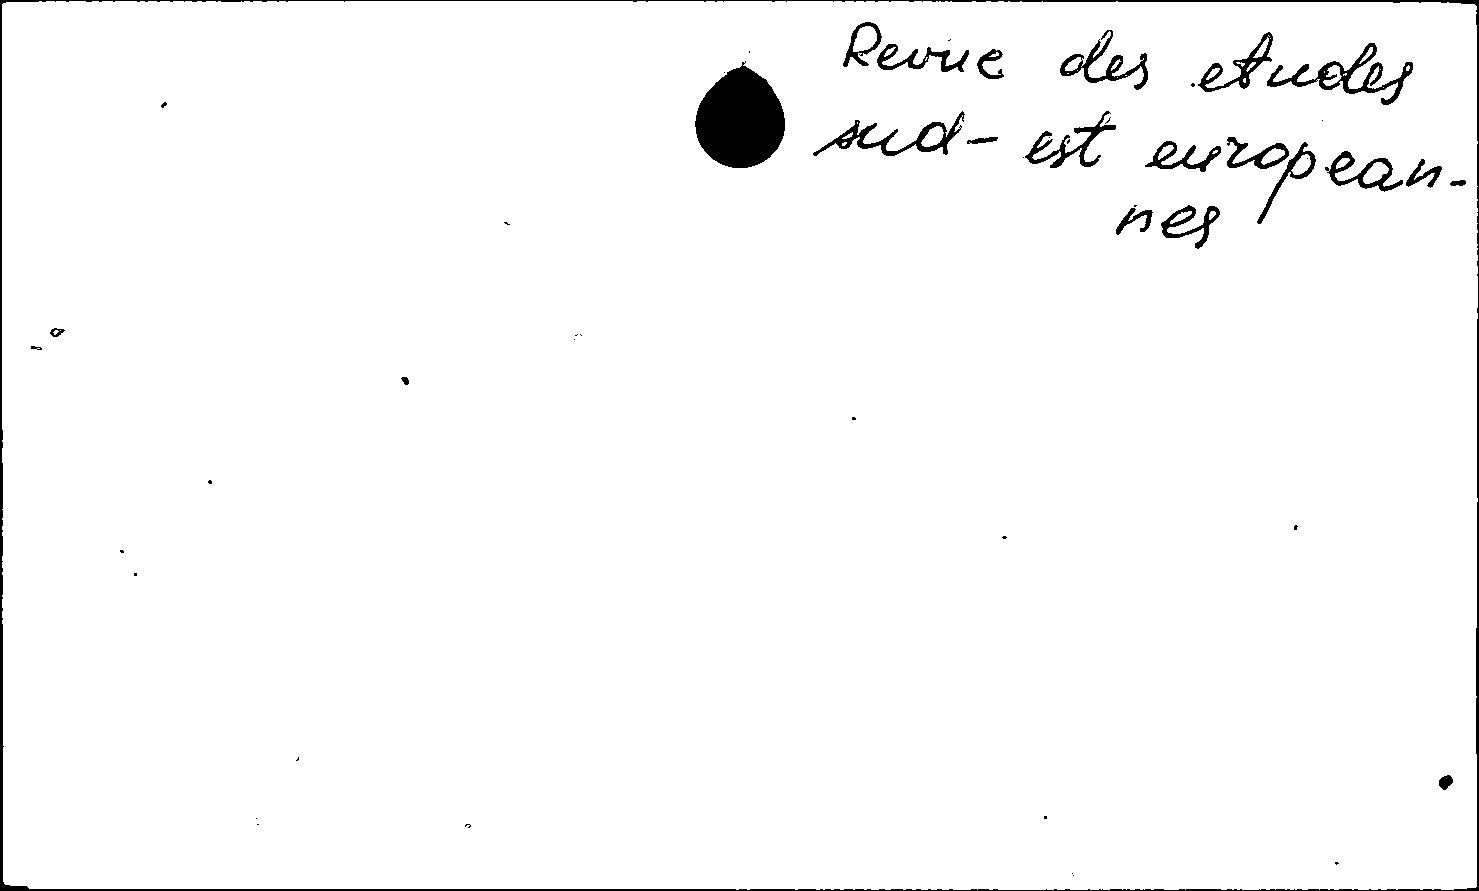 Revue des etudes
sud-est european-
nes